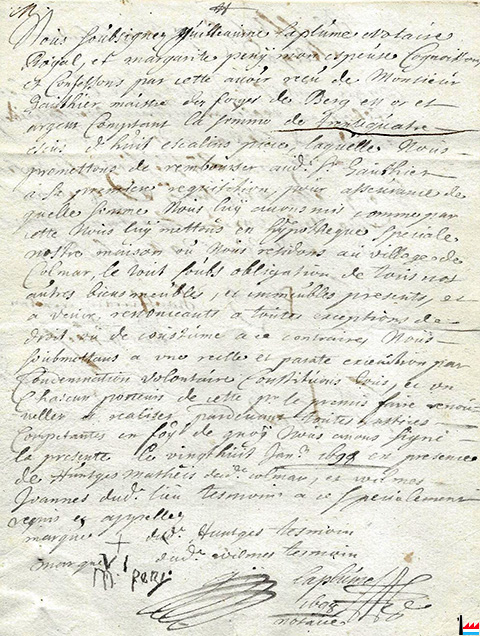 Nous soubsignez Guilleaume Laplume Notaire
Royal, et margarite penÿ mon espeuse Cognoissons
et Confessons par cette avoir receu de Monsieur
Gauthier maistre des forges de Berg en or et
argent Comptant la somme de Vintequatre
escus d'huit escalins piece, laquelle Nous
promettons de rembourser aud. Sr. Gauthier
a sa premiere requisition, pour asseurance de
quelle somme Nous luÿ avons mis comme par
cette Nous luÿ mettons en hÿpotheque speciale
nostre maison où Nous residons au village de
Colmar, le tout soubs obligation de tous nos
autres biens meubles, et immeubles presents, et
a venir, renoncants a toutes exceptions de
droit ou de coustume a ce contraires, Nous
soubmettans a vne reelle et parate execution par
Condemnation volontaire Constituons tous, et vn
Chascun porteurs de cette pr. le premis faire renou
veller et realiser pardevant toutes Justices
Competantes en foÿ de quoÿ Nous avons signé
la presente le vingthuit Janr. 1698 en presence
de Huntges Matheis de Colmar, et wilmes
Joannes dud. lieu tesmoins a ce specialement
requis et appellez
marque + dudt. Huntges tesmoin
marque VI dudt. wilmes tesmoin
m. penÿ
Laplume
1698
notaire